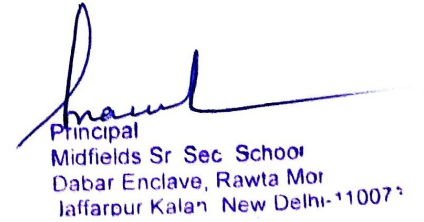 Principal
Midfields Sr Sec School
Dabar Enclave, Rawta Mor
Jaffarpur Kalan New Delhi-110073